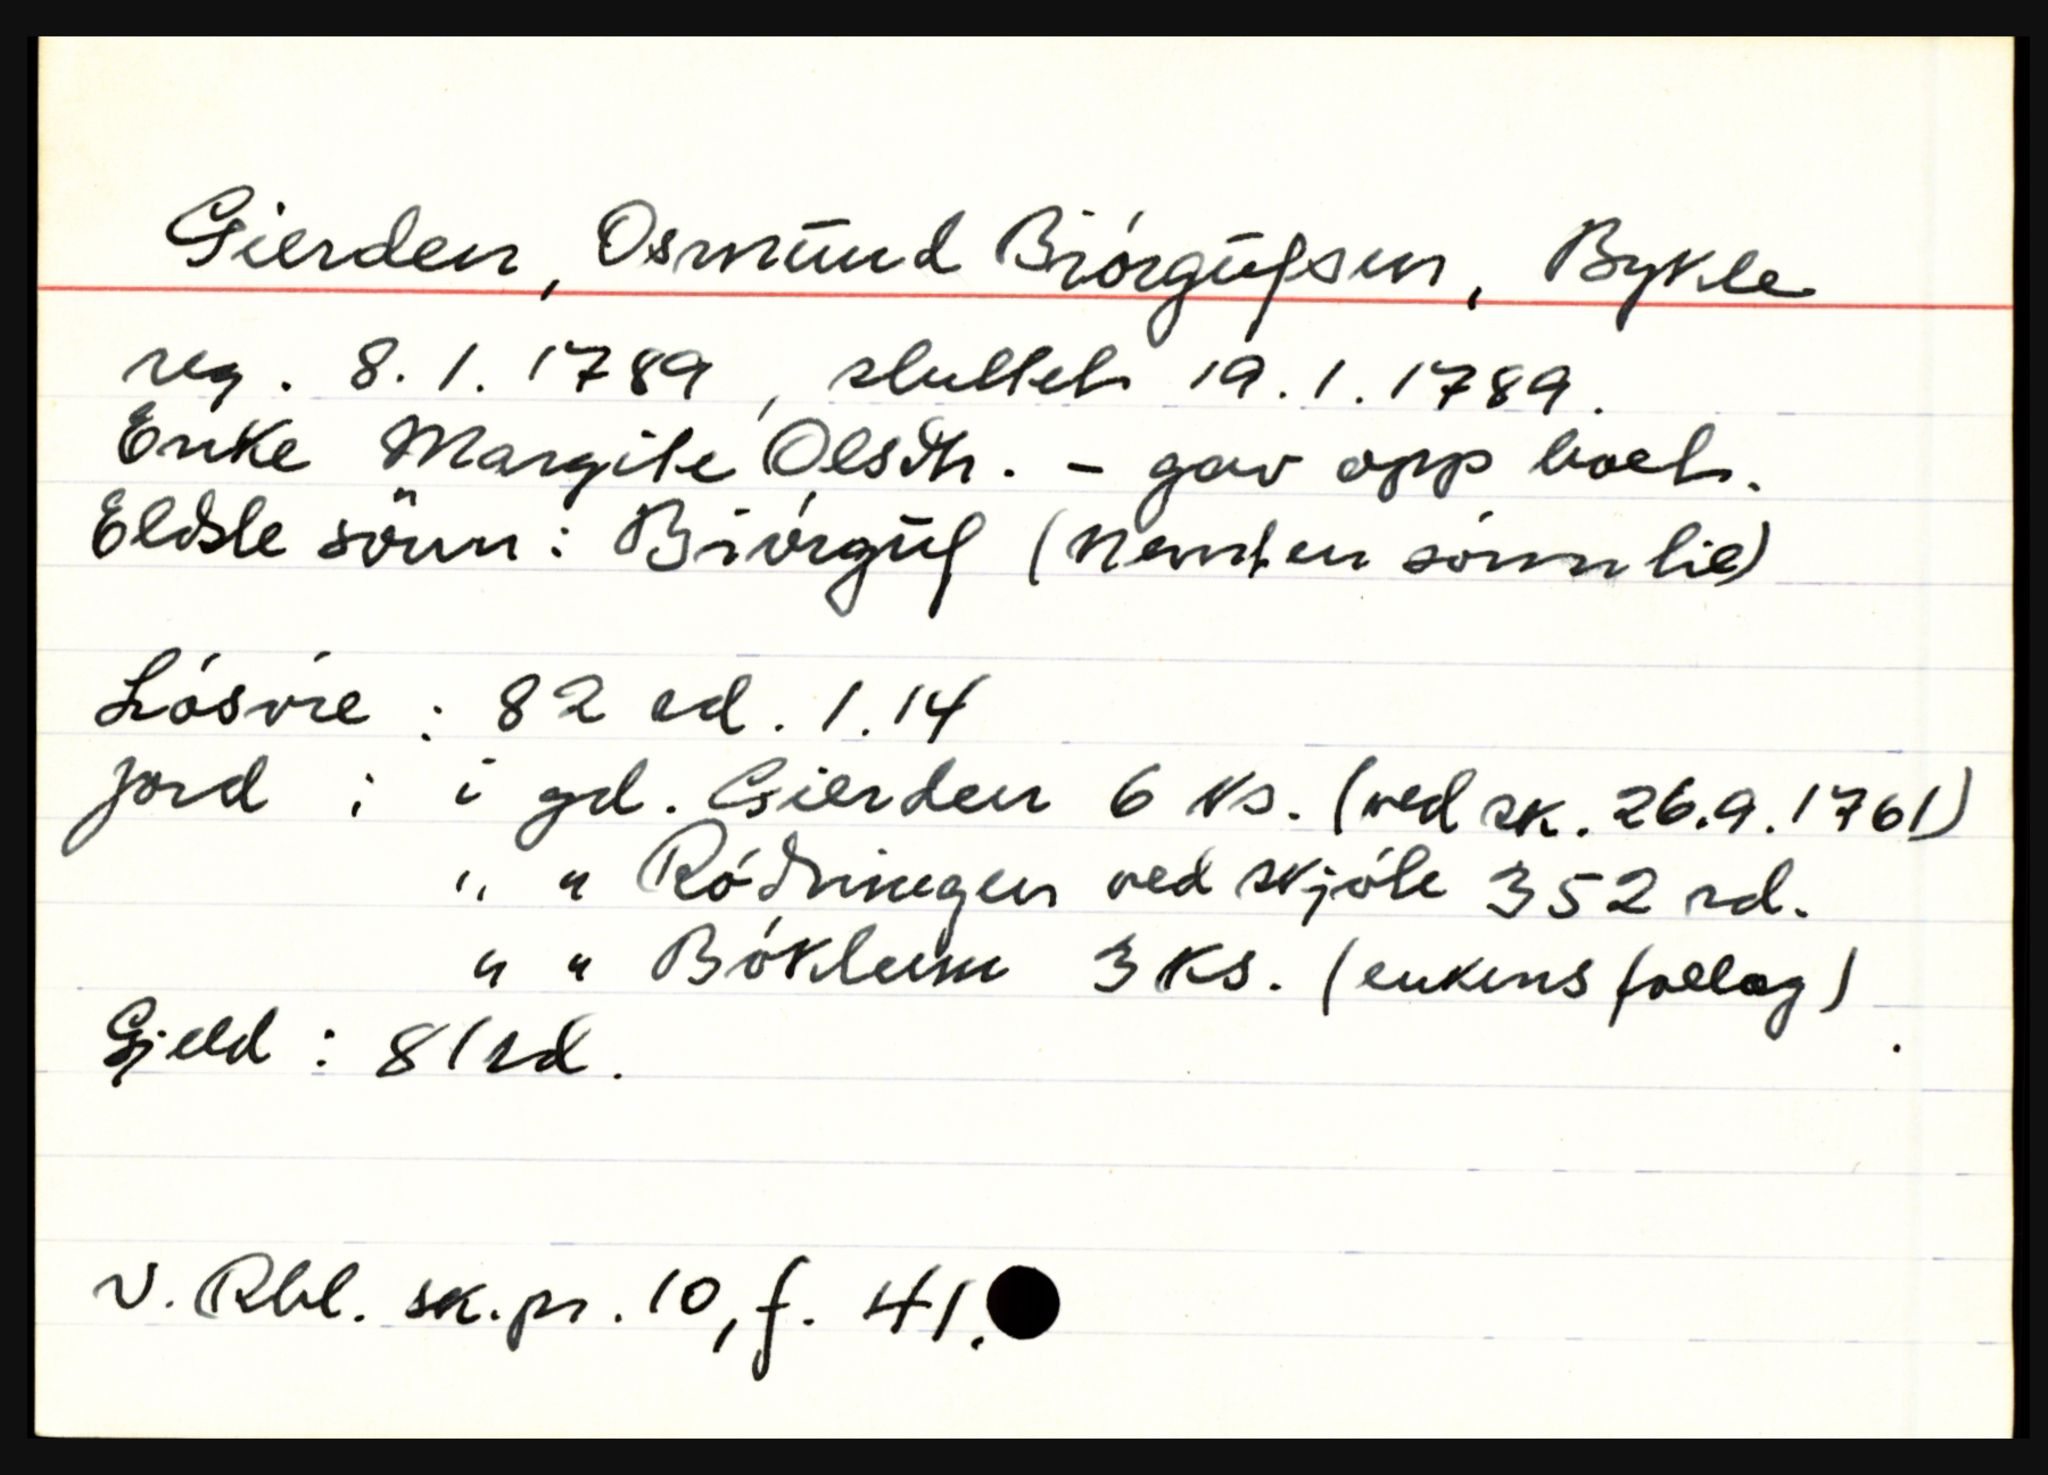 Gierden, Osmund Biórgufsen, Bykle
reg. 8.1.1789, sluttet 19.1.1789.
Enke Margite Olsdtr. - gav opp boet.
Eldste sönn: Biórguf (Nemt en sónn til)
Lósöre: 82 rd. 1.14
jord: i gd. Gierden 6 ks. (ved sk. 26.9.1761)
" " Ródningen ved skjóte 352 rd.
" " Bóklum 3 ks. (enkens faelag).
Gjeld: 81 rd.
v. Rbl. sk.pr. 10, f. 41.